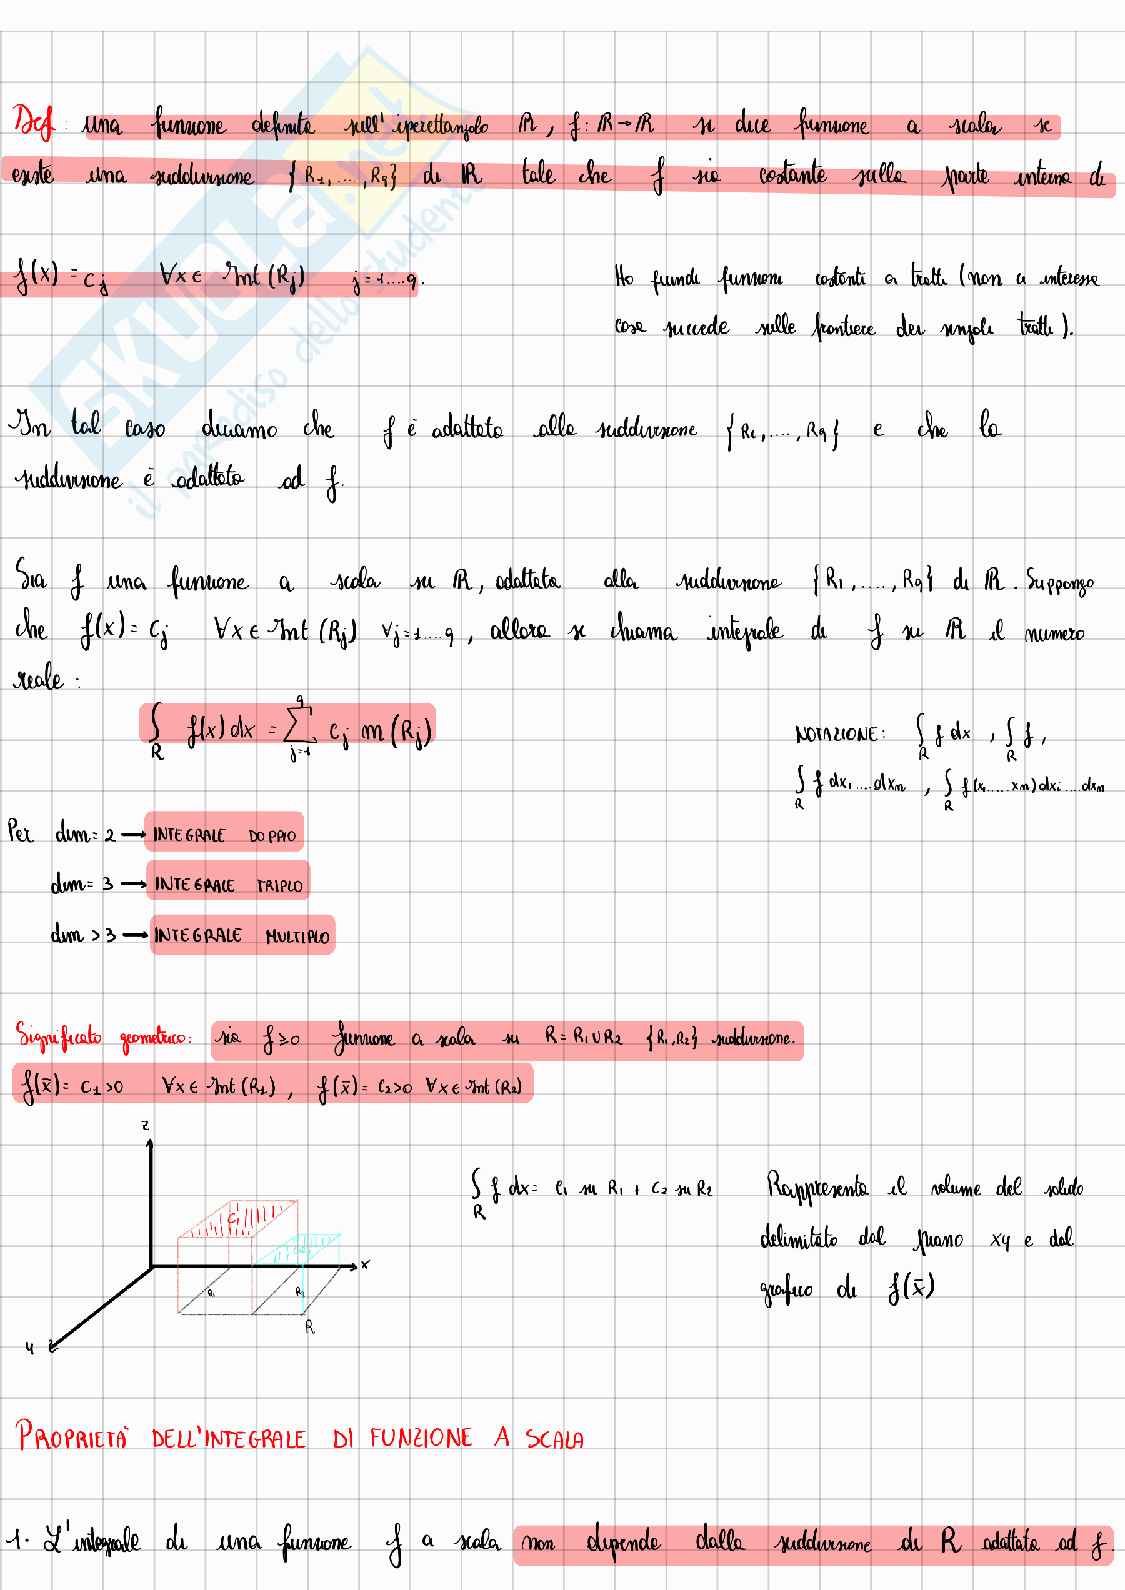 Def: una funzione definita sull'iperettangolo ℝ, f: ℝ→ℝ si dice funzione a scala se
esiste una suddivisione {R₁,....,Rq} di ℝ tale che f sia costante sulla parte interna di
f(x) = cj ∀x ∈ Int(Rj) j=1....q.
Ho quindi funzioni costanti a tratti (non ci interessa
cosa succede sulle frontiere dei singoli tratti).
In tal caso diciamo che f è adattata alla suddivisione {R₁,....,Rq} e che la
suddivisione è adattata ad f.
Sia f una funzione a scala su ℝ, adattata alla suddivisione {R₁,....,Rq} di ℝ. Suppongo
che f(x) = cj ∀x ∈ Int(Rj) ∀j=1....q, allora si chiama integrale di f su ℝ il numero
reale:
∫_R f(x)dx = ∑_{j=1}^{q} cj m(Rj)
NOTAZIONE: ∫_R f dx , ∫_R f ,
∫_R f dx₁....dxₙ , ∫_R f(x₁.....xₙ)dx₁....dxₙ
Per dim=2 → INTEGRALE DOPPIO
dim=3 → INTEGRALE TRIPLO
dim>3 → INTEGRALE MULTIPLO
Significato geometrico: sia f≥0 funzione a scala su R=R₁∪R₂ {R₁,R₂} suddivisione.
f(x̄) = c₁>0 ∀x ∈ Int(R₁) , f(x̄) = c₂>0 ∀x ∈ Int(R₂)
z
C₁
C₂
x
R₁
R₂
R
y
∫_R f dx = c₁ su R₁ + c₂ su R₂
Rappresenta il volume del solido
delimitato dal piano xy e dal
grafico di f(x̄)
PROPRIETÀ DELL'INTEGRALE DI FUNZIONE A SCALA
1. L'integrale di una funzione f a scala non dipende dalla suddivisione di R adattata ad f.
SKUOLA.net
il paradiso dello studente